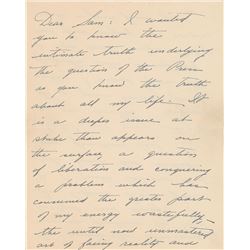 Dear Sam: I wanted
you to know the
intimate truth underlying
the question of the Press
as you know the truth
about all my life. It
is a deeper issue at
stake than appears on
the surface, a question
of liberation and conquering
a problem which has
consumed the greater part
of my energy wastefully –
the until now unmastered
art of facing reality and